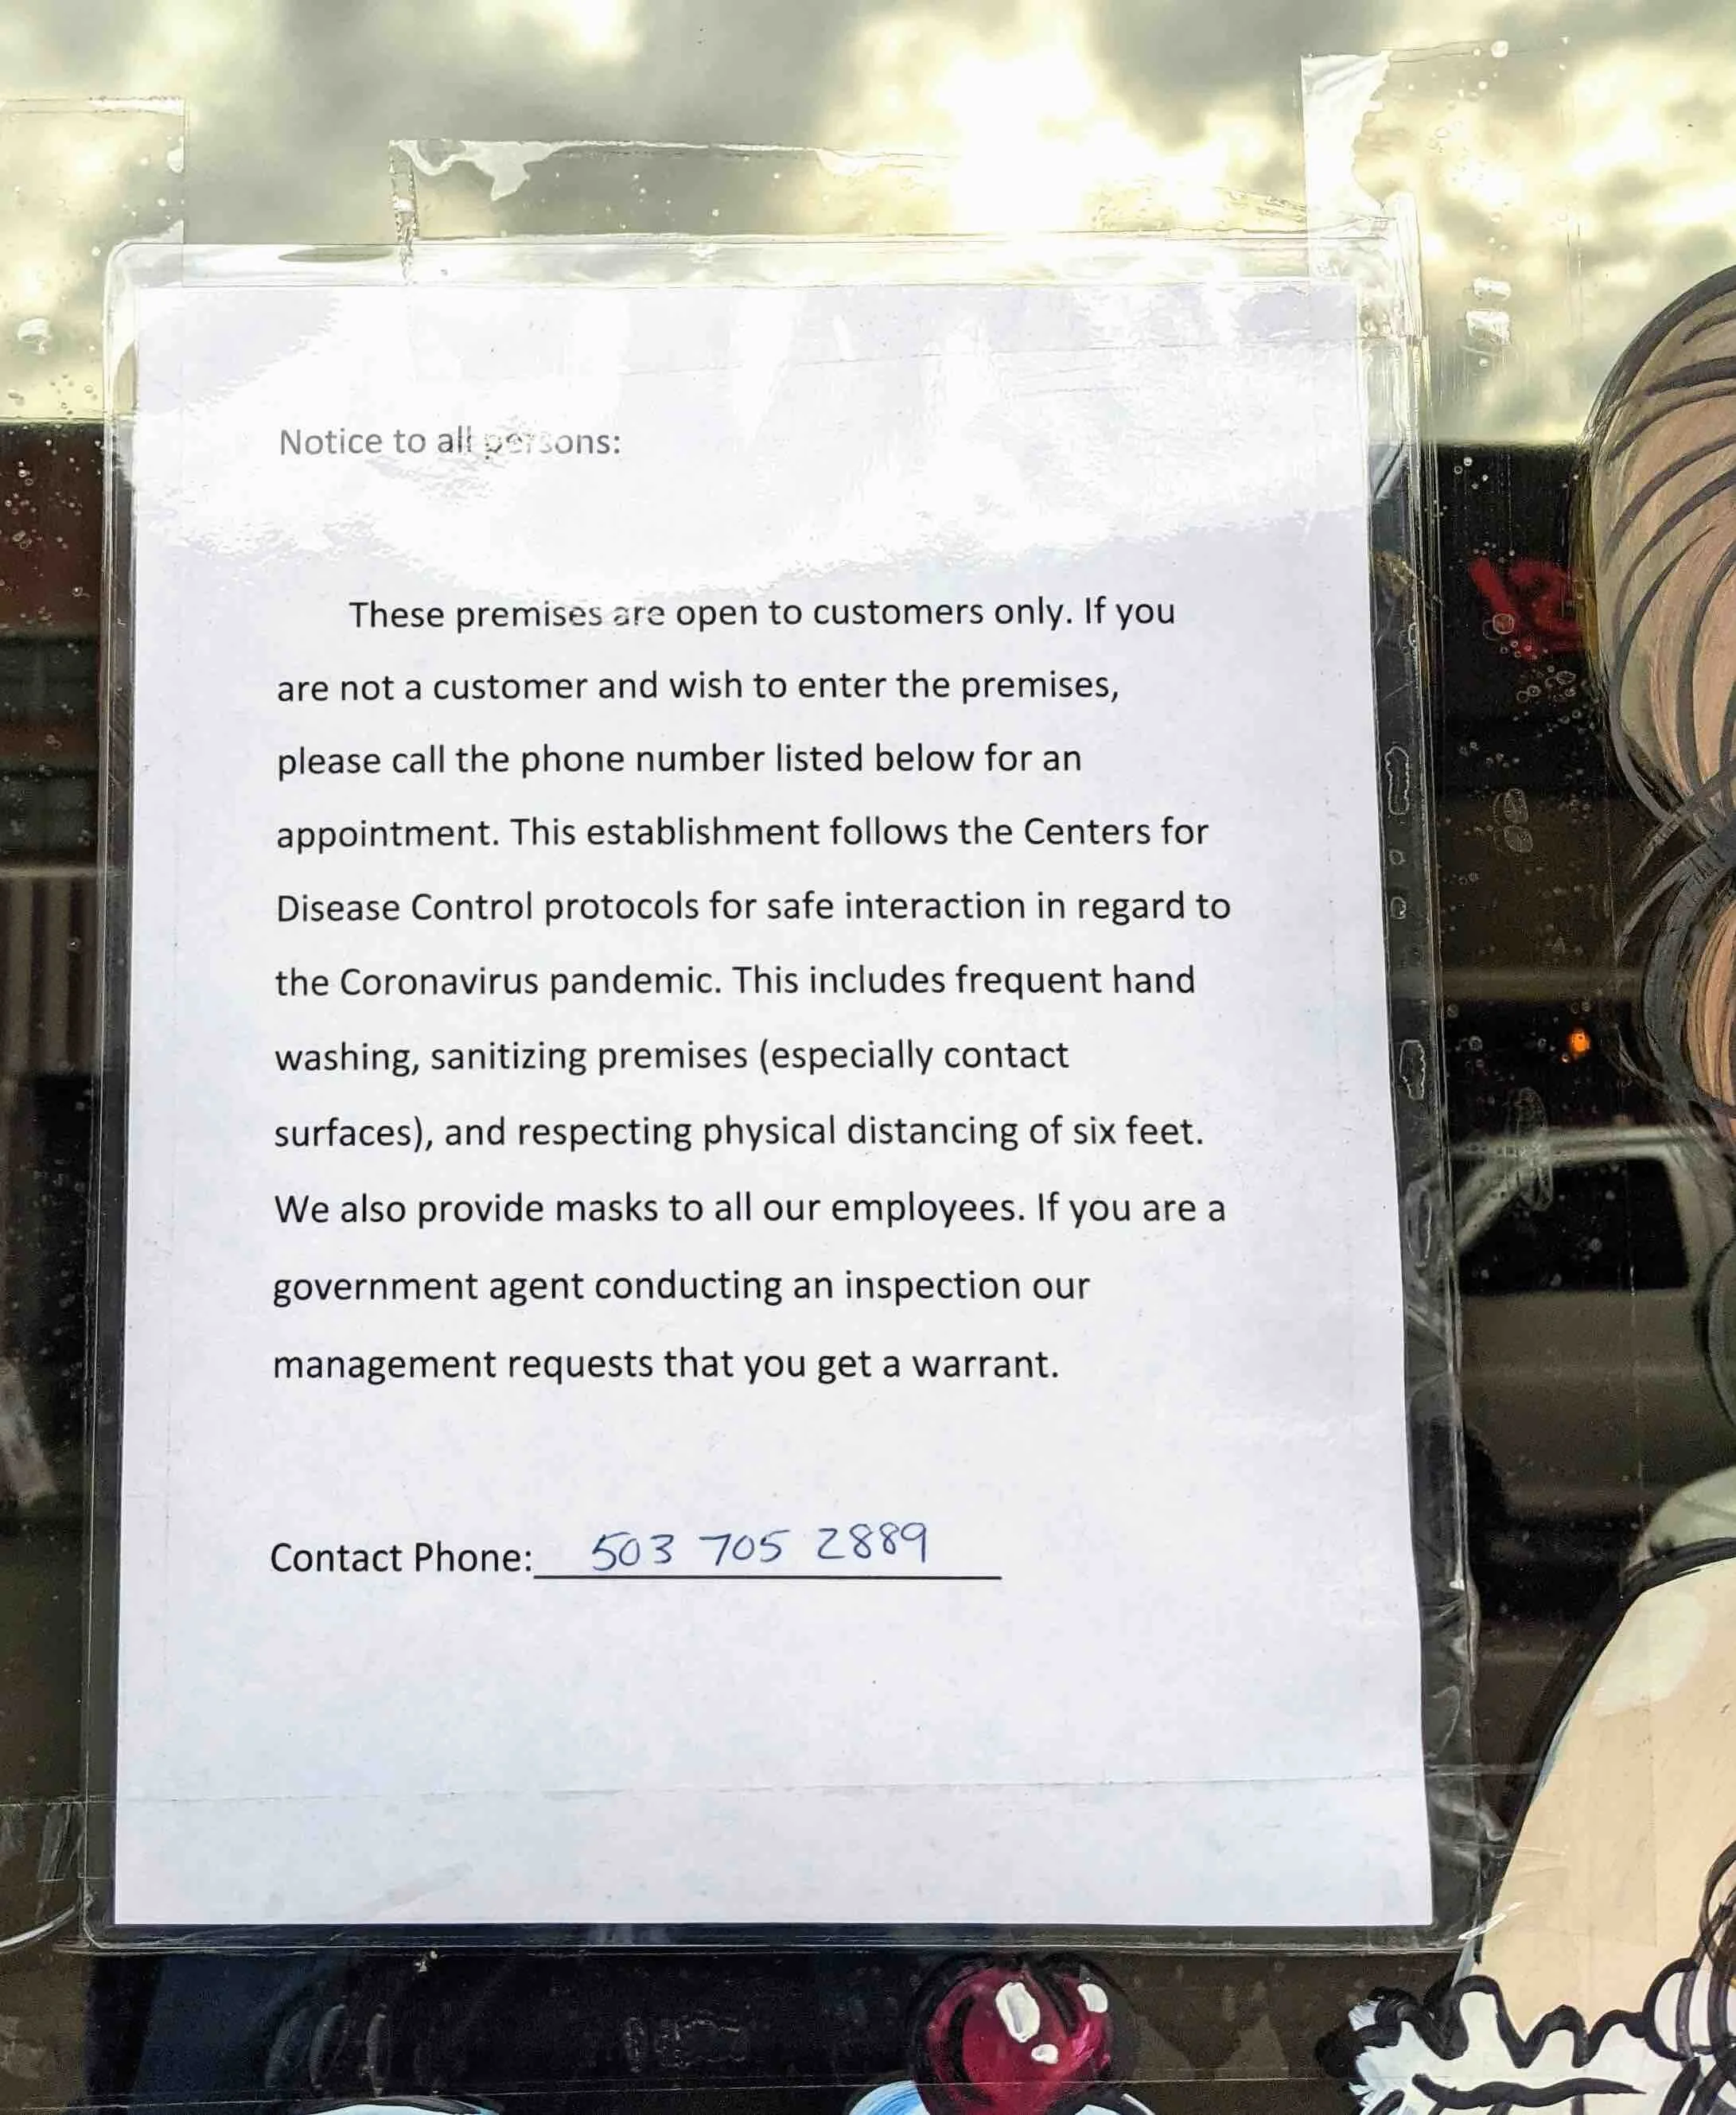 Notice to all persons:
These premises are open to customers only. If you
are not a customer and wish to enter the premises,
please call the phone number listed below for an
appointment. This establishment follows the Centers for
Disease Control protocols for safe interaction in regard to
the Coronavirus pandemic. This includes frequent hand
washing, sanitizing premises (especially contact
surfaces), and respecting physical distancing of six feet.
We also provide masks to all our employees. If you are a
government agent conducting an inspection our
management requests that you get a warrant.
Contact Phone: 503 705 2889